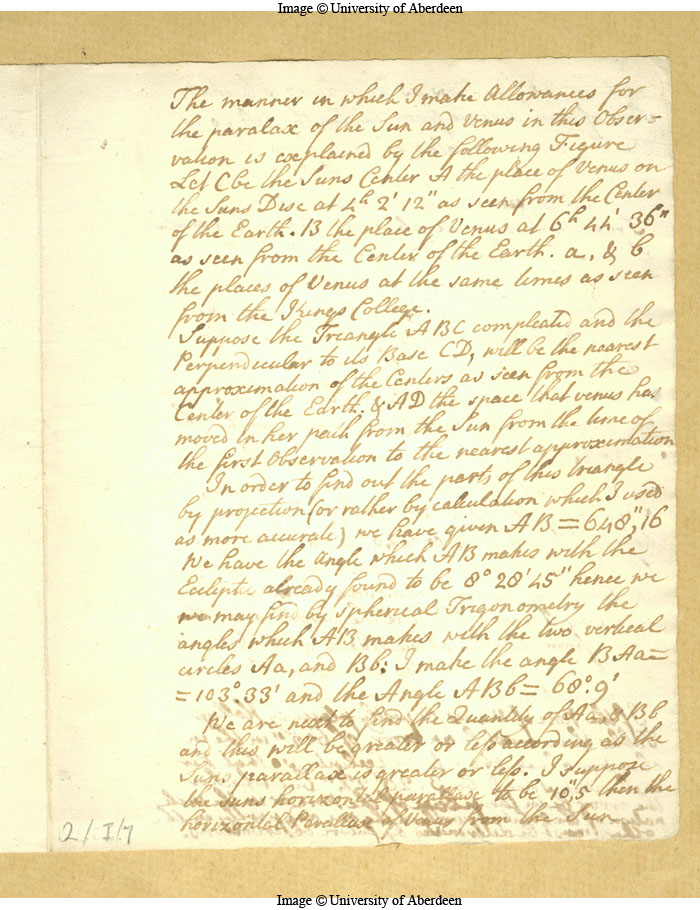 Image © University of Aberdeen
The manner in which I make Allowances for
the paralax of the Sun and Venus in this Obser=
vation is explained by the following Figure
Let C be the Suns Center A the place of Venus on
the Suns Disc at 4h 2' 12" as seen from the Center
of the Earth. B the place of Venus at 6h 44' 36"
as seen from the Center of the Earth. a, & b
the places of Venus at the same times as seen
from the Kings College.
Suppose the Triangle ABC compleatd and the
Perpendicular to its Base CD, will be the nearest
approximation of the Centers as seen from the
Center of the Earth. & AD the space that venus has
moved in her path from the Sun from the time of
the first Observation to the nearest approximation
In order to find out the parts of this triangle
by projection (or rather by calculation which I used
as more accurate) we have given AB = 648",16
We have the Angle which AB makes with the
Ecliptic already found to be 8° 28' 45" hence we
we may find by spherical Trigonometry the
angles which AB makes with the two vertical
circles Aa, and Bb: I make the angle BAa=
=103°.33' and the Angle ABb= 68°.9'
We are next to find the Quantity of Aa, & Bb
and this will be greater or less according as the
Suns parallax is greater or less. I suppose
the suns horizontal parallax to be 10",5 then the
horizontal Parallax of Venus from the Sun
2/I/7
Image © University of Aberdeen